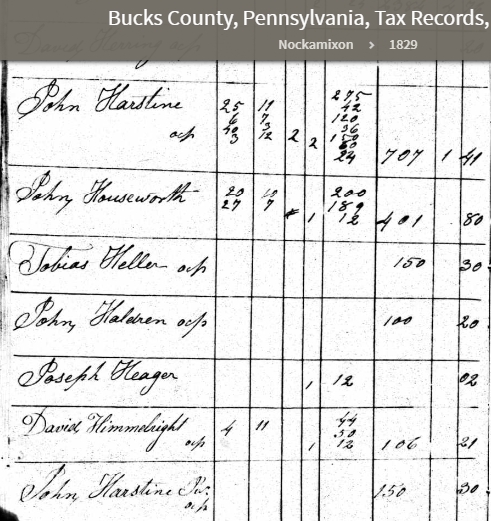 Bucks County, Pennsylvania, Tax Records,
Nockamixon > 1829
John Harstine 25 11 275
6 7 42
120
40 3 36
ocp 3 12 2 2 150
60
24 707 1 41
John Houseworth 20 10 200
27 7 189
1 12 401 80
Tobias Heller ocp 150 30
John Haldren ocp 100 20
Joseph Heager 1 12 02
David Himmelright 4 11 44
50
ocp 1 12 106 21
John Harstine Jur. 150 30
ocp